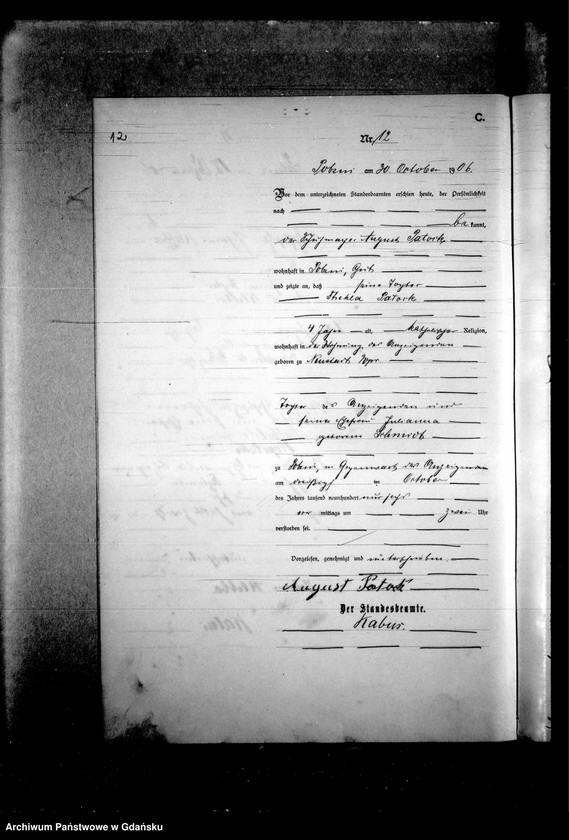 C.
12
Nr. 12
am 30. October 1906.
Vor dem unterzeichneten Standesbeamten erschien heute, der Persönlichkeit
nach
be kannt,
der August Patock
wohnhaft in Gut
und zeigte an, daß seine Tochter
Thekla Patock
4 Jahr alt, katholischer Religion,
wohnhaft in der Wohnung des Anzeigenden
geboren zu Neustadt Wpr.
Tochter des Anzeigenden und
seiner Ehefrau Julianna
geborene Schmidt
zu in Gegenwart des Anzeigenden
am dreißigsten October
des Jahrs tausend neunhundert und sechs
vor mittags um zwei Uhr
verstorben sei.
Vorgelesen, genehmigt und unterschrieben
August Patock
Der Standesbeamte.
Kabus.
Archiwum Państwowe w Gdańsku